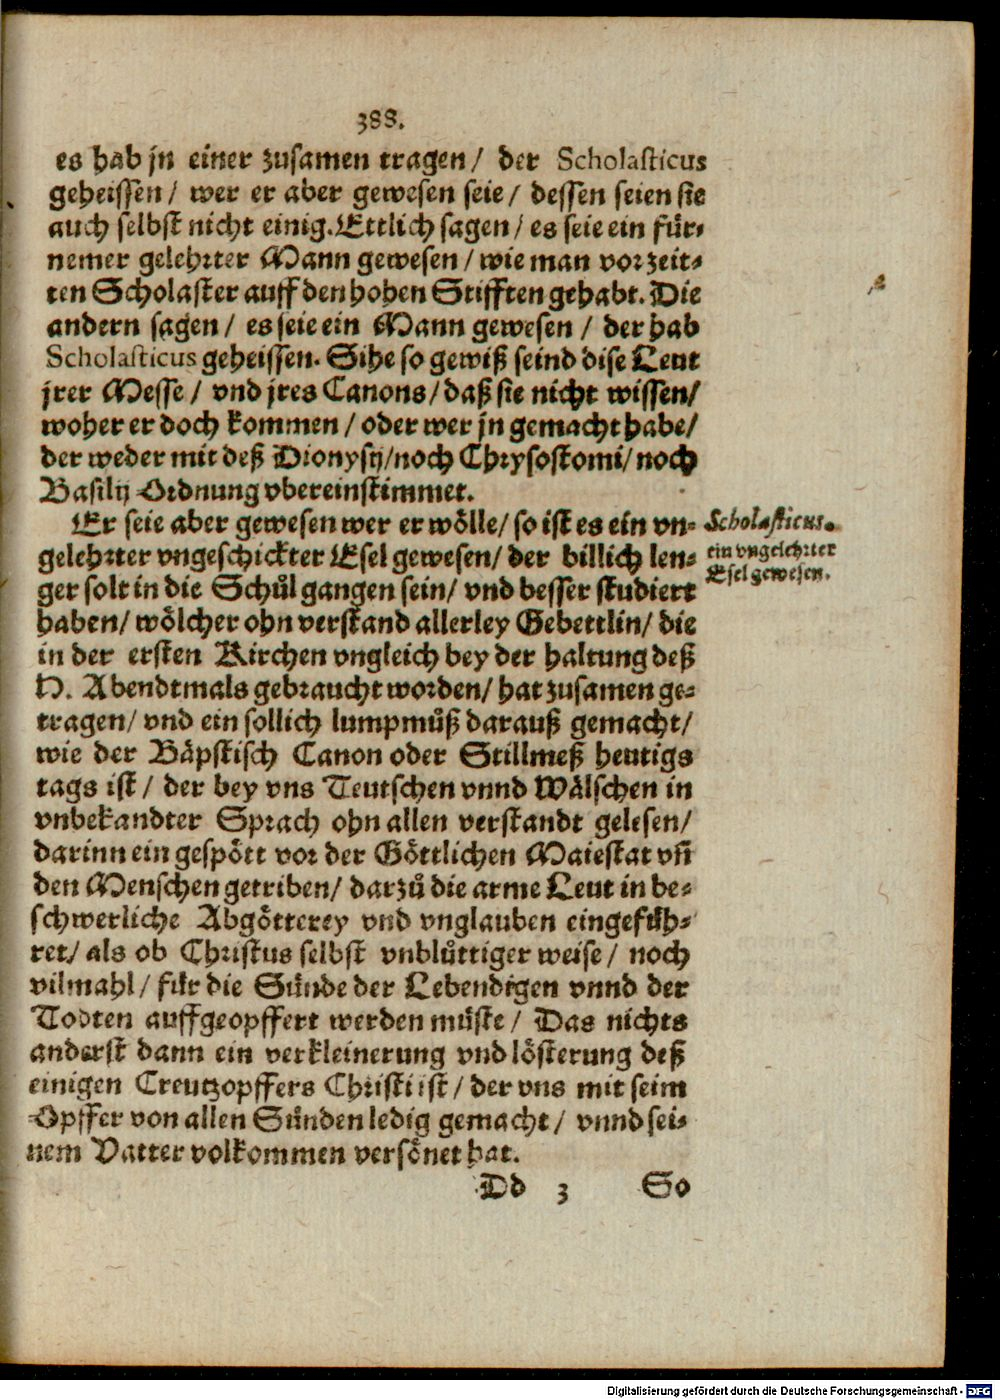 388.
es hab jn einer zusamen tragen / der Scholasticus
geheissen / wer er aber gewesen seie / dessen seien sie
auch selbst nicht einig. Ettlich sagen / es seie ein fuͤr⸗
nemer gelehrter Mann gewesen / wie man vor zeit⸗
ten Scholaster auff den hohen Stifften gehabt. Die
andern sagen / es seie ein Mann gewesen / der hab
Scholasticus geheissen. Sihe so gewiß seind dise Leut
jrer Messe / vnd jres Canons / daß sie nicht wissen /
woher er doch kommen / oder wer jn gemacht habe /
der weder mit deß Dionysij / noch Chrysostomi / noch
Basilij Ordnung vbereinstimmet.
Er seie aber gewesen wer er woͤlle / so ist es ein vn⸗
gelehrter vngeschickter Esel gewesen / der billich len⸗
ger solt in die Schuͦl gangen sein / vnd besser studiert
haben / woͤlcher ohn verstand allerley Gebettlin / die
in der ersten Kirchen vngleich bey der haltung deß
H. Abendtmals gebraucht worden / hat zusamen ge⸗
tragen / vnd ein sollich lumpmuͦß darauß gemacht /
wie der Baͤpstisch Canon oder Stillmeß heutigs
tags ist / der bey vns Teutschen vnnd Waͤlschen in
vnbekandter Sprach ohn allen verstandt gelesen /
darinn ein gespoͤtt vor der Goͤttlichen Maiestat vñ
den Menschen getriben / darzuͦ die arme Leut in be⸗
schwerliche Abgoͤtterey vnd vnglauben eingefuͤh⸗
ret / als ob Christus selbst vnbluͤttiger weise / noch
vilmahl / fuͤr die Suͤnde der Lebendigen vnnd der
Todten auffgeopffert werden muͤste / Das nichts
anderst dann ein verkleinerung vnd loͤsterung deß
einigen Creutzopffers Christi ist / der vns mit seim
Opffer von allen Suͤnden ledig gemacht / vnnd sei⸗
nem Vatter volkommen versoͤnet hat.
Dd 3 So
Scholasticus.
ein vngelehrter
Esel gewesen.
Digitalisierung gefördert durch die Deutsche Forschungsgemeinschaft - DFG